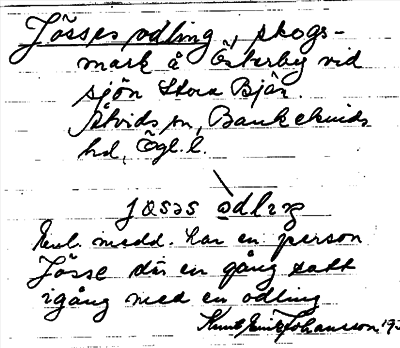 Jösses odling, skogs-
mark å Österby vid
sjön Stora Bjän.
Åtvids sn, Bankekinds
hd, Ögl. l.
jøsəs ødlıŋ
Enl. medd. har en person
Jösse där en gång satt
igång med en odling
Johansson